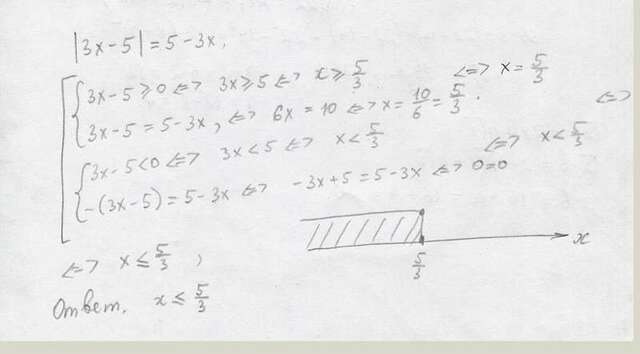 |3x-5|=5-3x,
3x-5≥0 <=> 3x≥5 <=> x≥5/3 <=> x=5/3
3x-5=5-3x, <=> 6x=10 <=> x=10/6=5/3. <=>
3x-5<0 <=> 3x<5 <=> x<5/3 <=> x<5/3
-(3x-5)=5-3x <=> -3x+5=5-3x <=> 0=0
x
5/3
<=> x≤5/3,
Ответ. x≤5/3